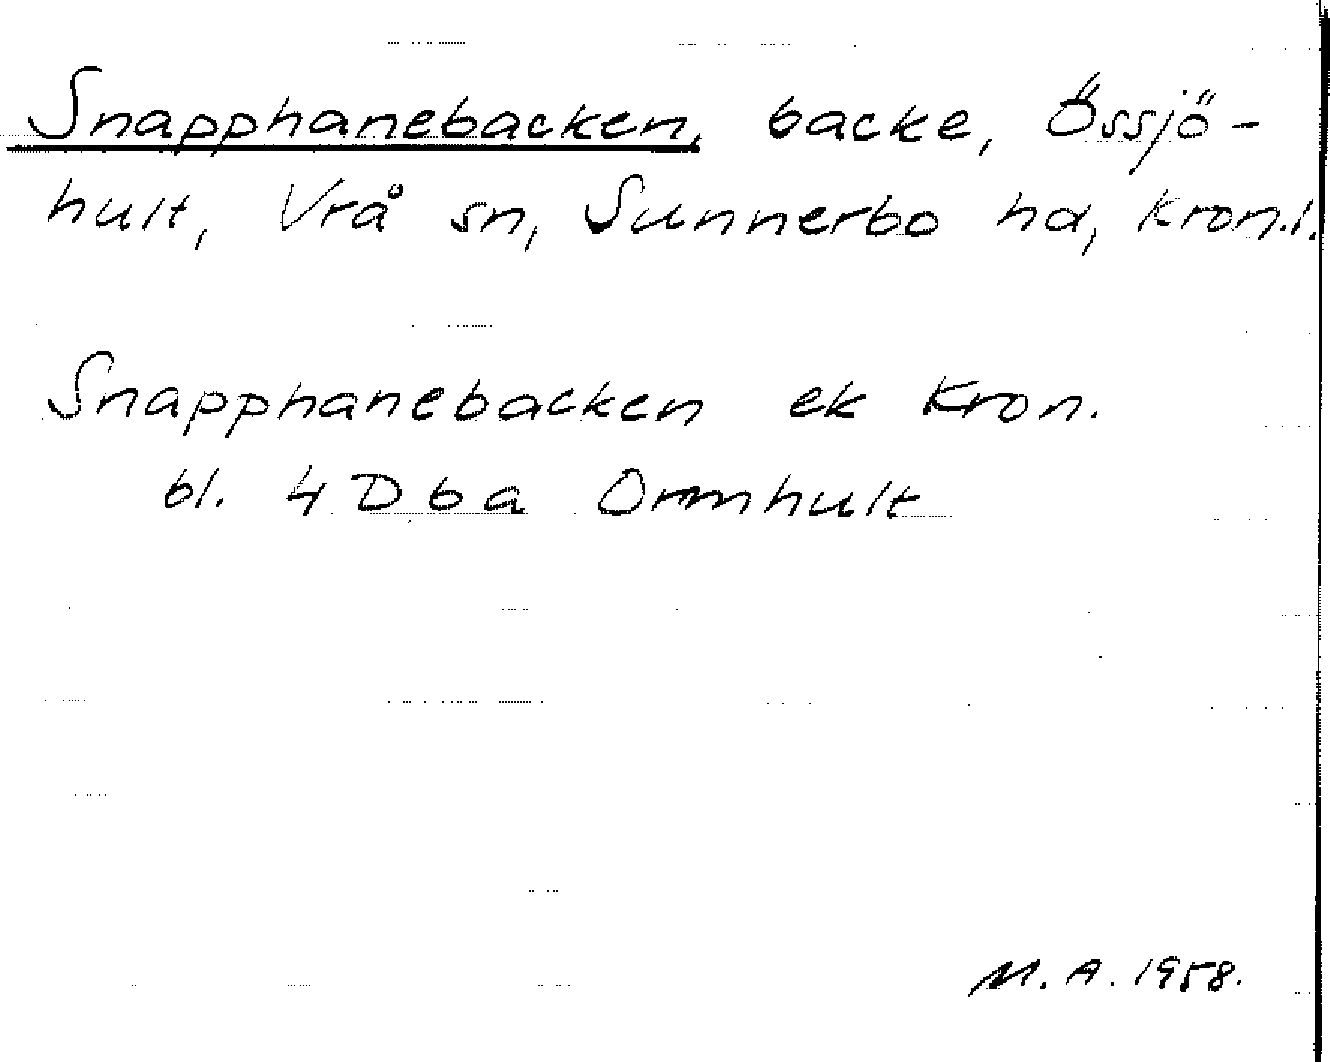 Snapphanebacken, backe, Össjö-
hult, Vrå sn, Sunnerbo hd, Kron.l.
Snapphanebacken ek Kron.
bl. 4 D b a Ormhult
M. A. 1958.